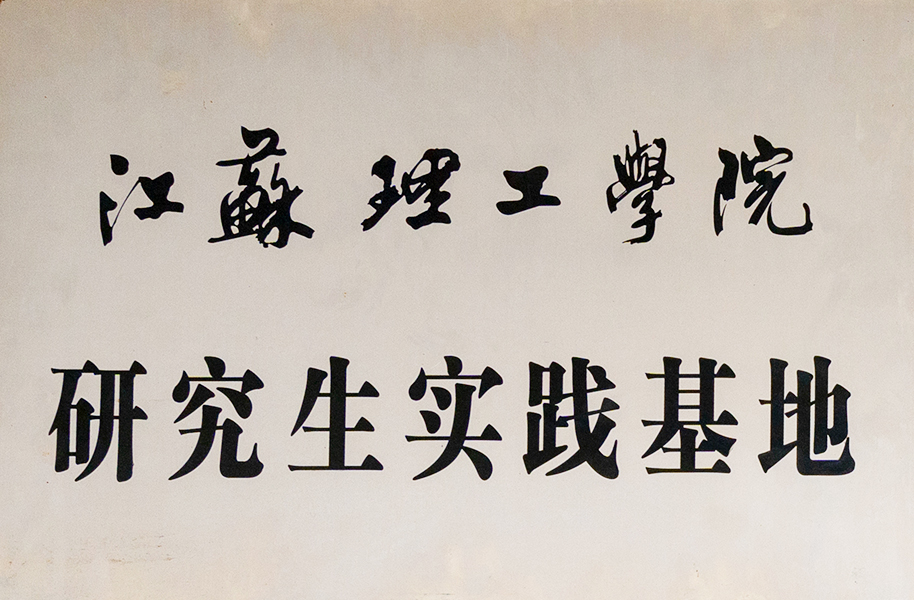 江蘇理工學院
研究生实践基地